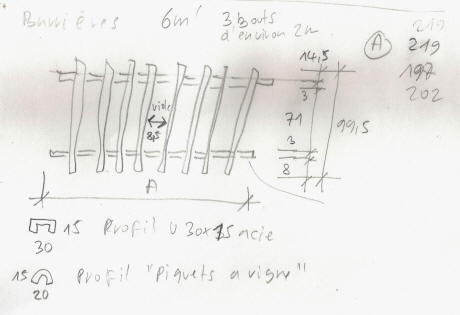 Barrières 6m' 3 bouts
d'environ 2m
A
219
219
197
202
14,5
3
vide
8,5
71
99,5
3
8
A
15 Profil U 30x15 acie
30
15 Profil "Piquets a vigne"
20